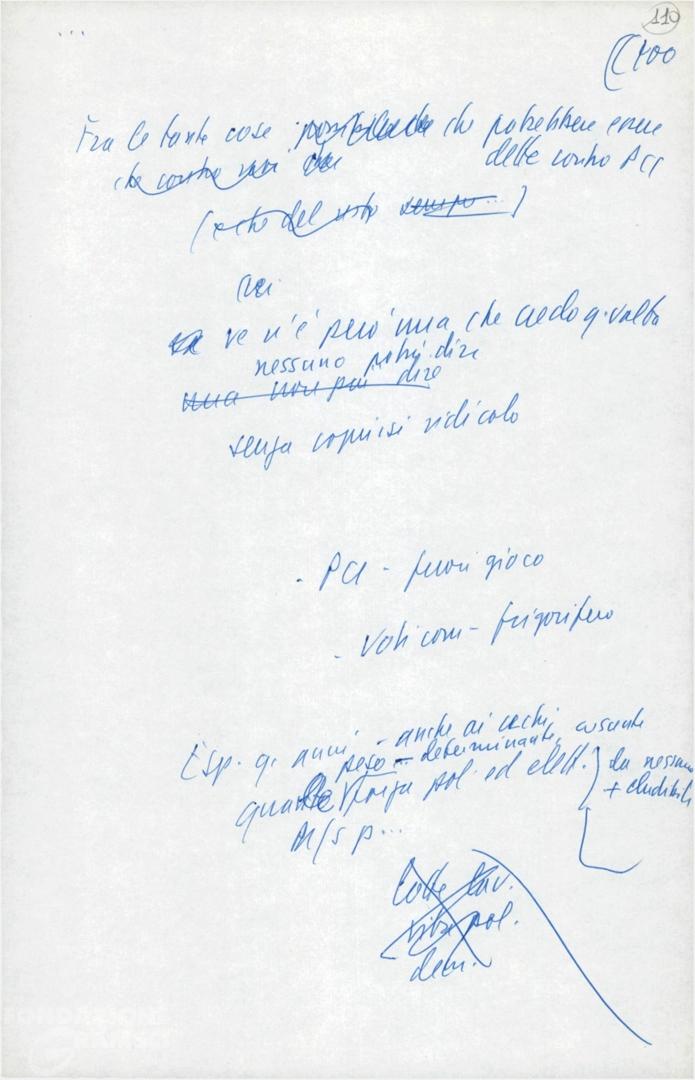 110
Fra le tante cose che potrebbero essere
che contro noi dette contro PCI
(e che del resto sempre...)
ve n'è però una che credo q. volta
nessuno potrà dire
una non può dire
senza coprirsi ridicolo
- PCI - fuori gioco
- Voti com - frigorifero
Esp. q. anni - anche ai cechi,
peso - determinante, crescente
forza pol. ed elett. da nessuno
+ eludibili
M/S p...
lotte lav.
vita pol.
dem.